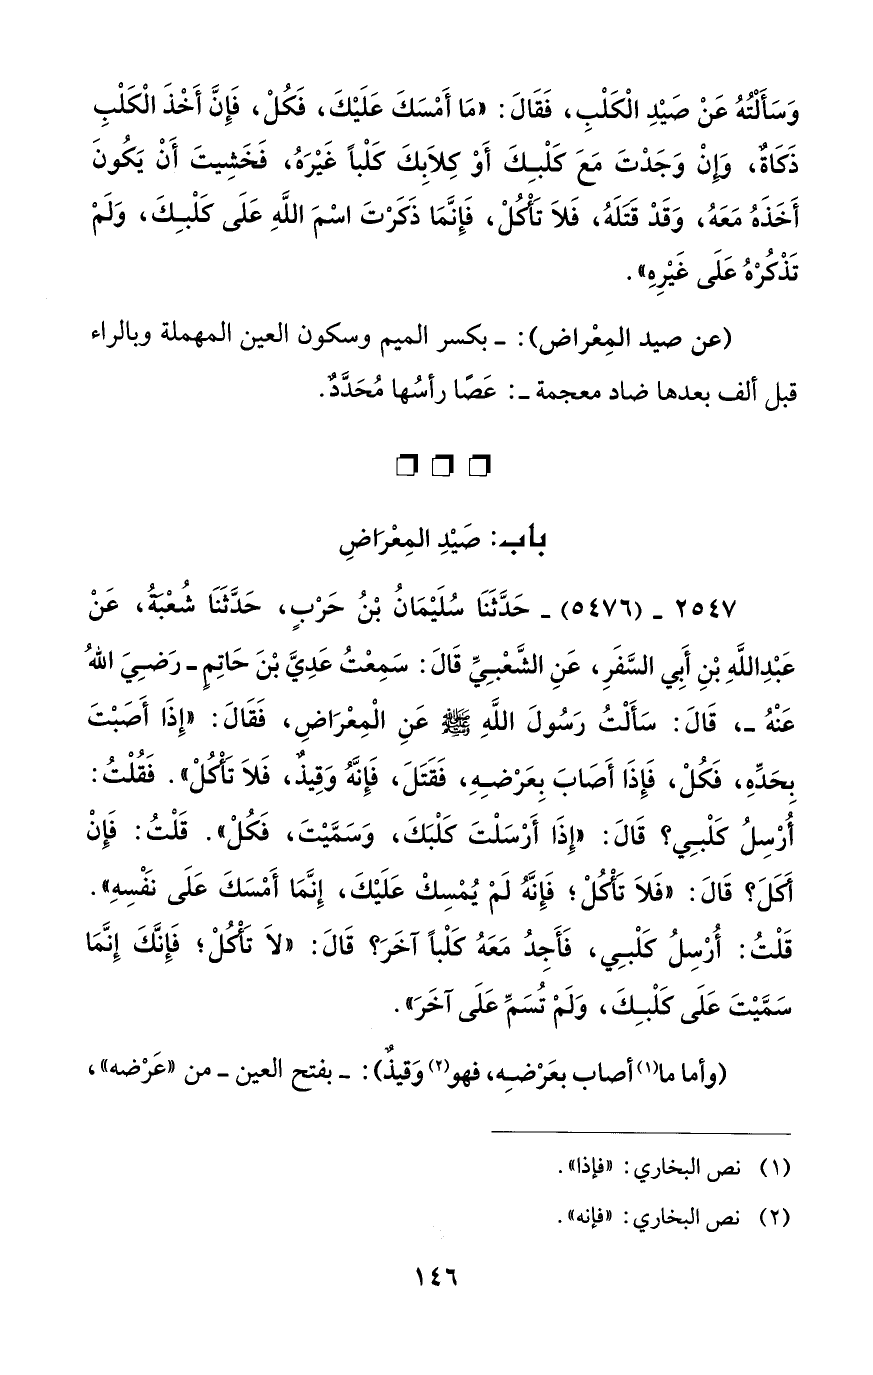 وَسَأَلْتُهُ عَنْ صَيْدِ الْكَلْبِ، فَقَالَ: «مَا أَمْسَكَ عَلَيْكَ، فَكُلْ، فَإِنَّ أَخْذَ الْكَلْبِ
ذَكَاةٌ، وَإِنْ وَجَدْتَ مَعَ كَلْبِكَ أَوْ كِلاَبِكَ كَلْباً غَيْرَهُ، فَخَشِيتَ أَنْ يَكُونَ
أَخَذَهُ مَعَهُ، وَقَدْ قَتَلَهُ، فَلاَ تَأْكُلْ، فَإِنَّمَا ذَكَرْتَ اسْمَ اللَّهِ عَلَى كَلْبِكَ، وَلَمْ
تَذْكُرْهُ عَلَى غَيْرِهِ».
(عن صيد المِعْراض): ـ بكسر الميم وسكون العين المهملة وبالراء
قبل ألف بعدها ضاد معجمة ـ: عَصًا رأسُها مُحَدَّدٌ.
باب: صَيْدِ المِعْرَاضِ
٢٥٤٧ ـ (٥٤٧٦) ـ حَدَّثَنَا سُلَيْمَانُ بْنُ حَرْبٍ، حَدَّثَنَا شُعْبَةُ، عَنْ
عَبْدِاللَّهِ بْنِ أَبِي السَّفَرِ، عَنِ الشَّعْبِيِّ قَالَ: سَمِعْتُ عَدِيَّ بْنَ حَاتِمٍ ـ رَضِيَ اللهُ
عَنْهُ ـ، قَالَ: سَأَلْتُ رَسُولَ اللَّهِ ﷺ عَنِ الْمِعْرَاضِ، فَقَالَ: «إِذَا أَصَبْتَ
بِحَدِّهِ، فَكُلْ، فَإِذَا أَصَابَ بِعَرْضِهِ، فَقَتَلَ، فَإِنَّهُ وَقِيذٌ، فَلاَ تَأْكُلْ». فَقُلْتُ:
أُرْسِلُ كَلْبِي؟ قَالَ: «إِذَا أَرْسَلْتَ كَلْبَكَ، وَسَمَّيْتَ، فَكُلْ». قُلْتُ: فَإِنْ
أَكَلَ؟ قَالَ: «فَلاَ تَأْكُلْ؛ فَإِنَّهُ لَمْ يُمْسِكْ عَلَيْكَ، إِنَّمَا أَمْسَكَ عَلَى نَفْسِهِ».
قُلْتُ: أُرْسِلُ كَلْبِي، فَأَجِدُ مَعَهُ كَلْباً آخَرَ؟ قَالَ: «لاَ تَأْكُلْ؛ فَإِنَّكَ إِنَّمَا
سَمَّيْتَ عَلَى كَلْبِكَ، وَلَمْ تُسَمِّ عَلَى آخَرَ».
(وأما ما(١) أصاب بعَرْضِه، فهو(٢) وَقيذٌ): ـ بفتح العين ـ من «عَرْضه»،
(١) نص البخاري: «فإذا».
(٢) نص البخاري: «فإنه».
١٤٦